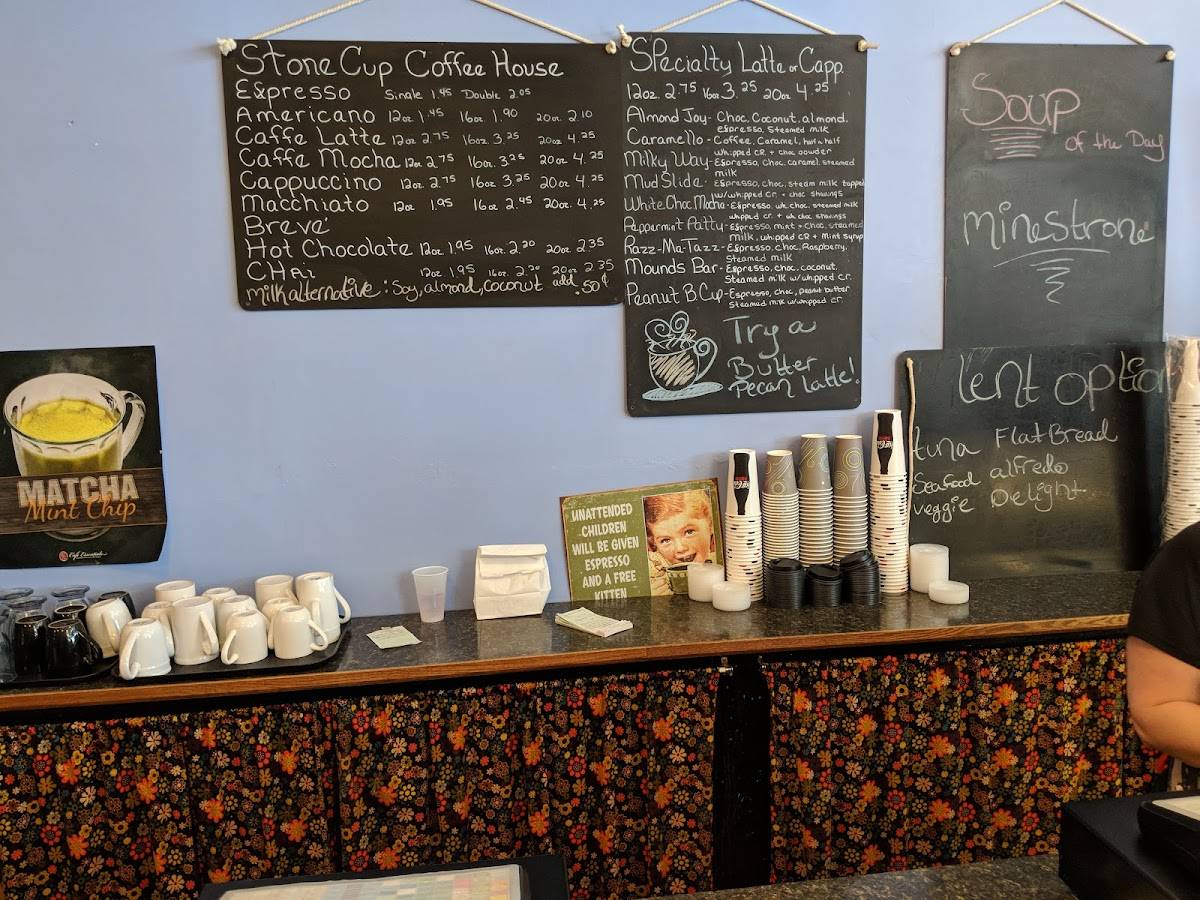 Stone Cup Coffee House
Espresso Single 1.45 Double 2.05
Americano 12oz 1.45 16oz 1.90 20oz 2.10
Caffe Latte 12oz 2.75 16oz 3.25 20oz 4.25
Caffe Mocha 12oz 2.75 16oz. 3.25 20oz 4.25
Cappuccino 12oz 2.75 16oz 3.25 20oz 4.25
Macchiato 12oz 1.95 16oz 2.45 20oz. 4.25
Brevé
Hot Chocolate 12oz 1.95 16oz 2.20 20oz 2.35
CHAi 12oz 1.95 16oz 2.20 20oz 2.35
milk alternative: Soy, almond, coconut add .50¢
Specialty Latte or Capp.
12oz 2.75 16oz 3.25 20oz 4.25
Almond Joy- Choc. Coconut. almond.
Espresso, Steamed milk
Caramello- Coffee, Caramel, half n half
whipped cr. + choc powder
Milky Way- Espresso, choc, caramel, steamed
milk
Mud Slide- Espresso, choc, steam milk topped
w/whipped cr. + choc shavings
White Choc Mocha- Espresso, wh choc, steamed milk
whipped cr. + wh choc shavings
Peppermint Patty- Espresso, mint + choc, steamed
milk, whipped cr + mint syrup
Razz-Ma-Tazz- Espresso, choc, Raspberry,
Steamed milk
Mounds Bar- Espresso, choc, coconut.
Steamed milk w/whipped cr.
Peanut B. Cup- Espresso, choc, peanut butter
Steamed milk w/whipped cr.
Try a
Butter
Pecan Latte!
Soup
of the Day
minestrone
Lent option
tuna Flat Bread
Seafood alfredo
veggie Delight
MATCHA
Mint Chip
Café Essentials
UNATTENDED
CHILDREN
WILL BE GIVEN
ESPRESSO
AND A FREE
KITTEN